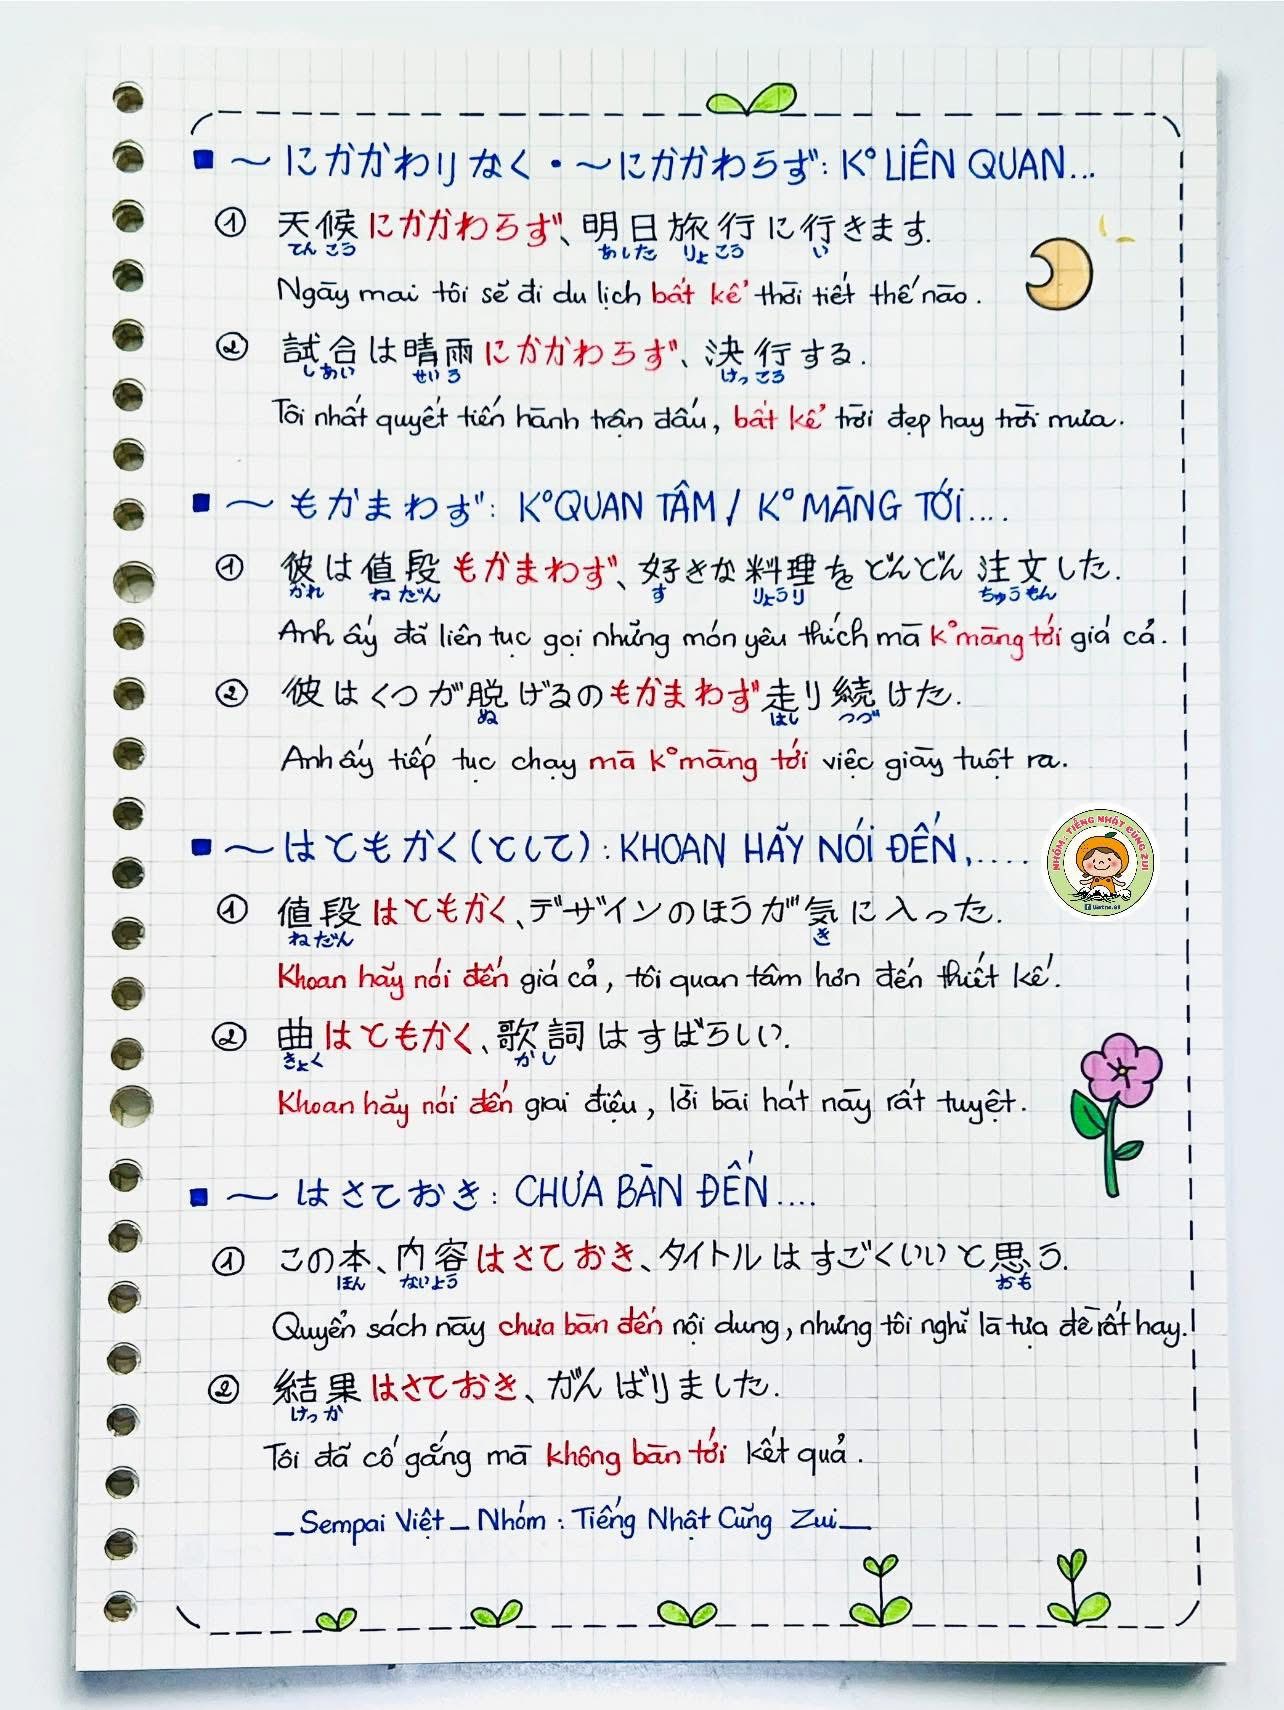 ■ ～にかかわりなく・～にかかわらず: K° LIÊN QUAN...
① 天候にかかわらず、明日旅行に行きます.
てんこう あした りょこう い
Ngày mai tôi sẽ đi du lịch bất kể thời tiết thế nào.
② 試合は晴雨にかかわらず、決行する.
しあい せいう けっこう
Tôi nhất quyết tiến hành trận đấu, bất kể trời đẹp hay trời mưa.
■ ～もかまわず: K° QUAN TÂM / K° MÀNG TỚI....
① 彼は値段もかまわず、好きな料理をどんどん注文した.
かれ ねだん す りょうり ちゅうもん
Anh ấy đã liên tục gọi những món yêu thích mà k° màng tới giá cả.
② 彼はくつが脱げるのもかまわず走り続けた.
ぬ はし つづ
Anh ấy tiếp tục chạy mà k° màng tới việc giày tuột ra.
■ ～はともかく(として): KHOAN HÃY NÓI ĐẾN,....
NHÓM : TIẾNG NHẬT CÙNG ZUI
① 値段はともかく、デザインのほうが気に入った.
ねだん き
Khoan hãy nói đến giá cả, tôi quan tâm hơn đến thiết kế.
② 曲はともかく、歌詞はすばらしい.
きょく かし
Khoan hãy nói đến giai điệu, lời bài hát này rất tuyệt.
■ ～はさておき: CHƯA BÀN ĐẾN....
① この本、内容はさておき、タイトルはすごくいいと思う.
ほん ないよう おも
Quyển sách này chưa bàn đến nội dung, nhưng tôi nghĩ là tựa đề rất hay.
② 結果はさておき、がんばりました.
けっか
Tôi đã cố gắng mà không bàn tới kết quả.
_ Sempai Việt _ Nhóm : Tiếng Nhật Cùng Zui _